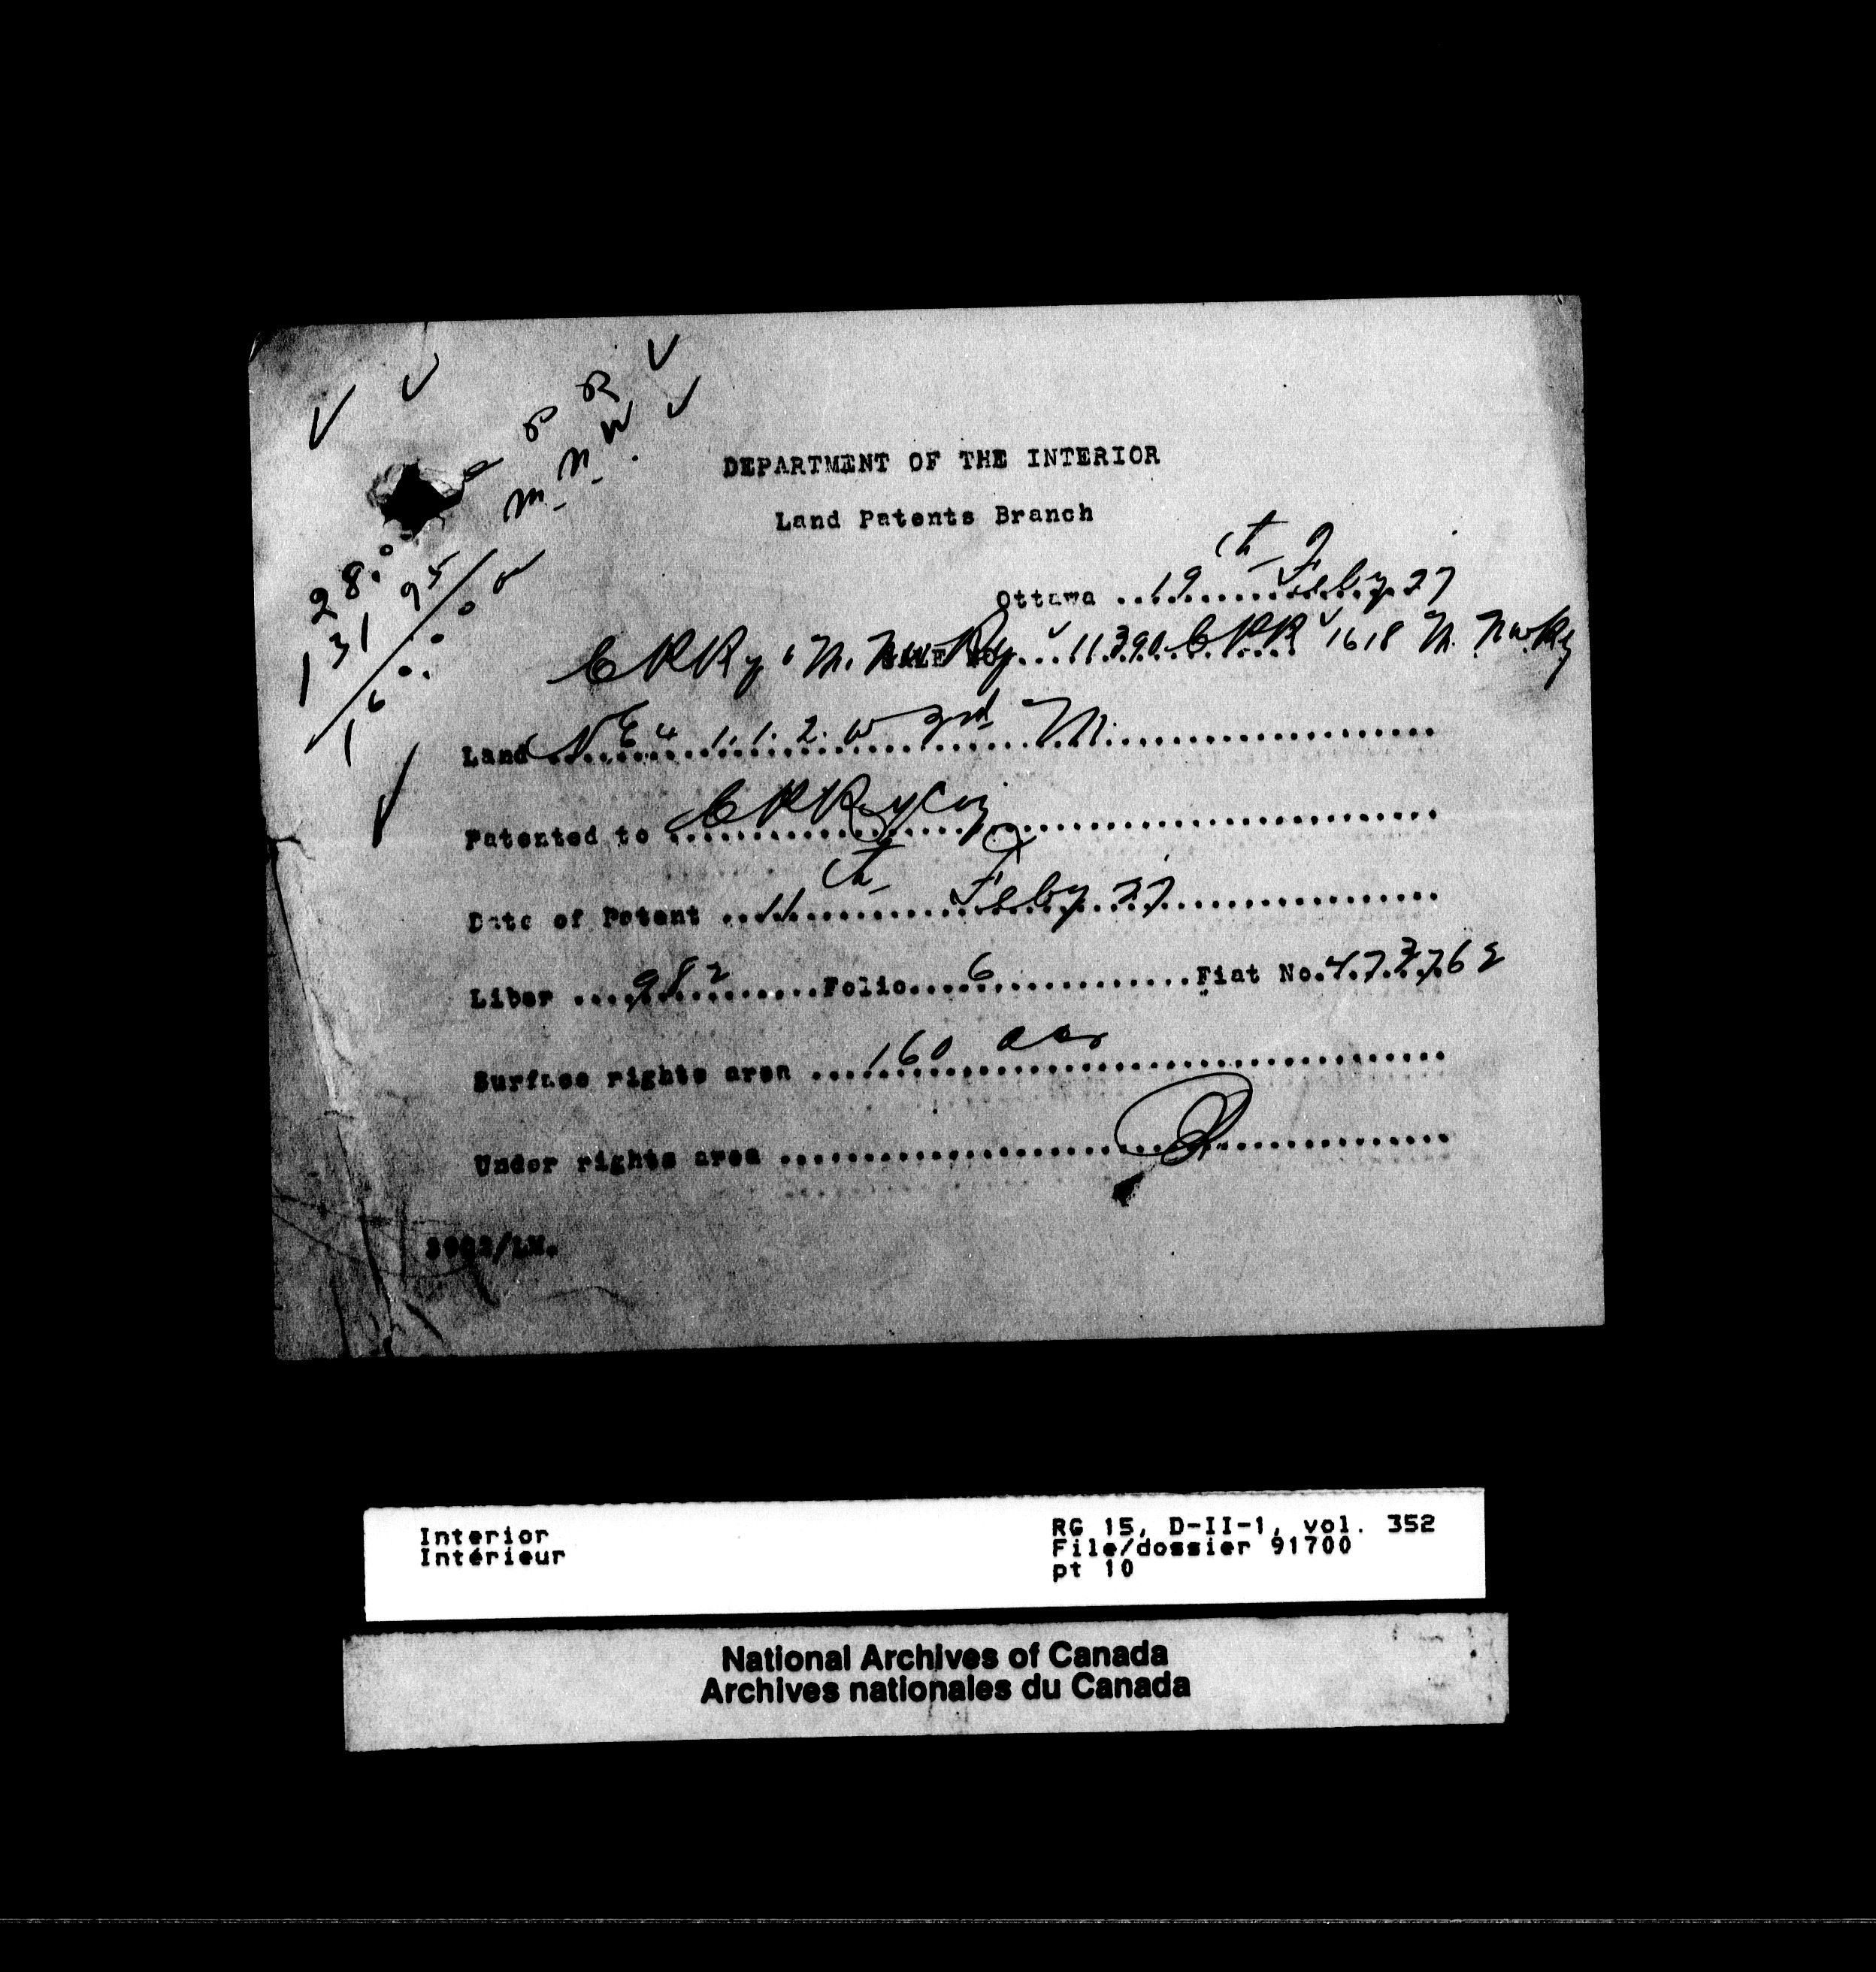 C P R
M. N. W.
28.0
131 95
160.00
DEPARTMENT OF THE INTERIOR
Land Patents Branch
Ottawa ....19th Feby. 27
C P Ry & M. N. W. Ry ... 11390 C P R 1618 M. N W Ry
Land N E 4 1. 1. 2. W 3rd M.
Patented to C P Ry Coy
Date of Patent ....11th Feby 27
Liber ....982....Folio....6....Fiat No.
Surface rights area ....160 acs
Under rights area ....
Interior RG 15, D-II-1, vol. 352
Intérieur File/dossier 91700
pt 10
National Archives of Canada
Archives nationales du Canada